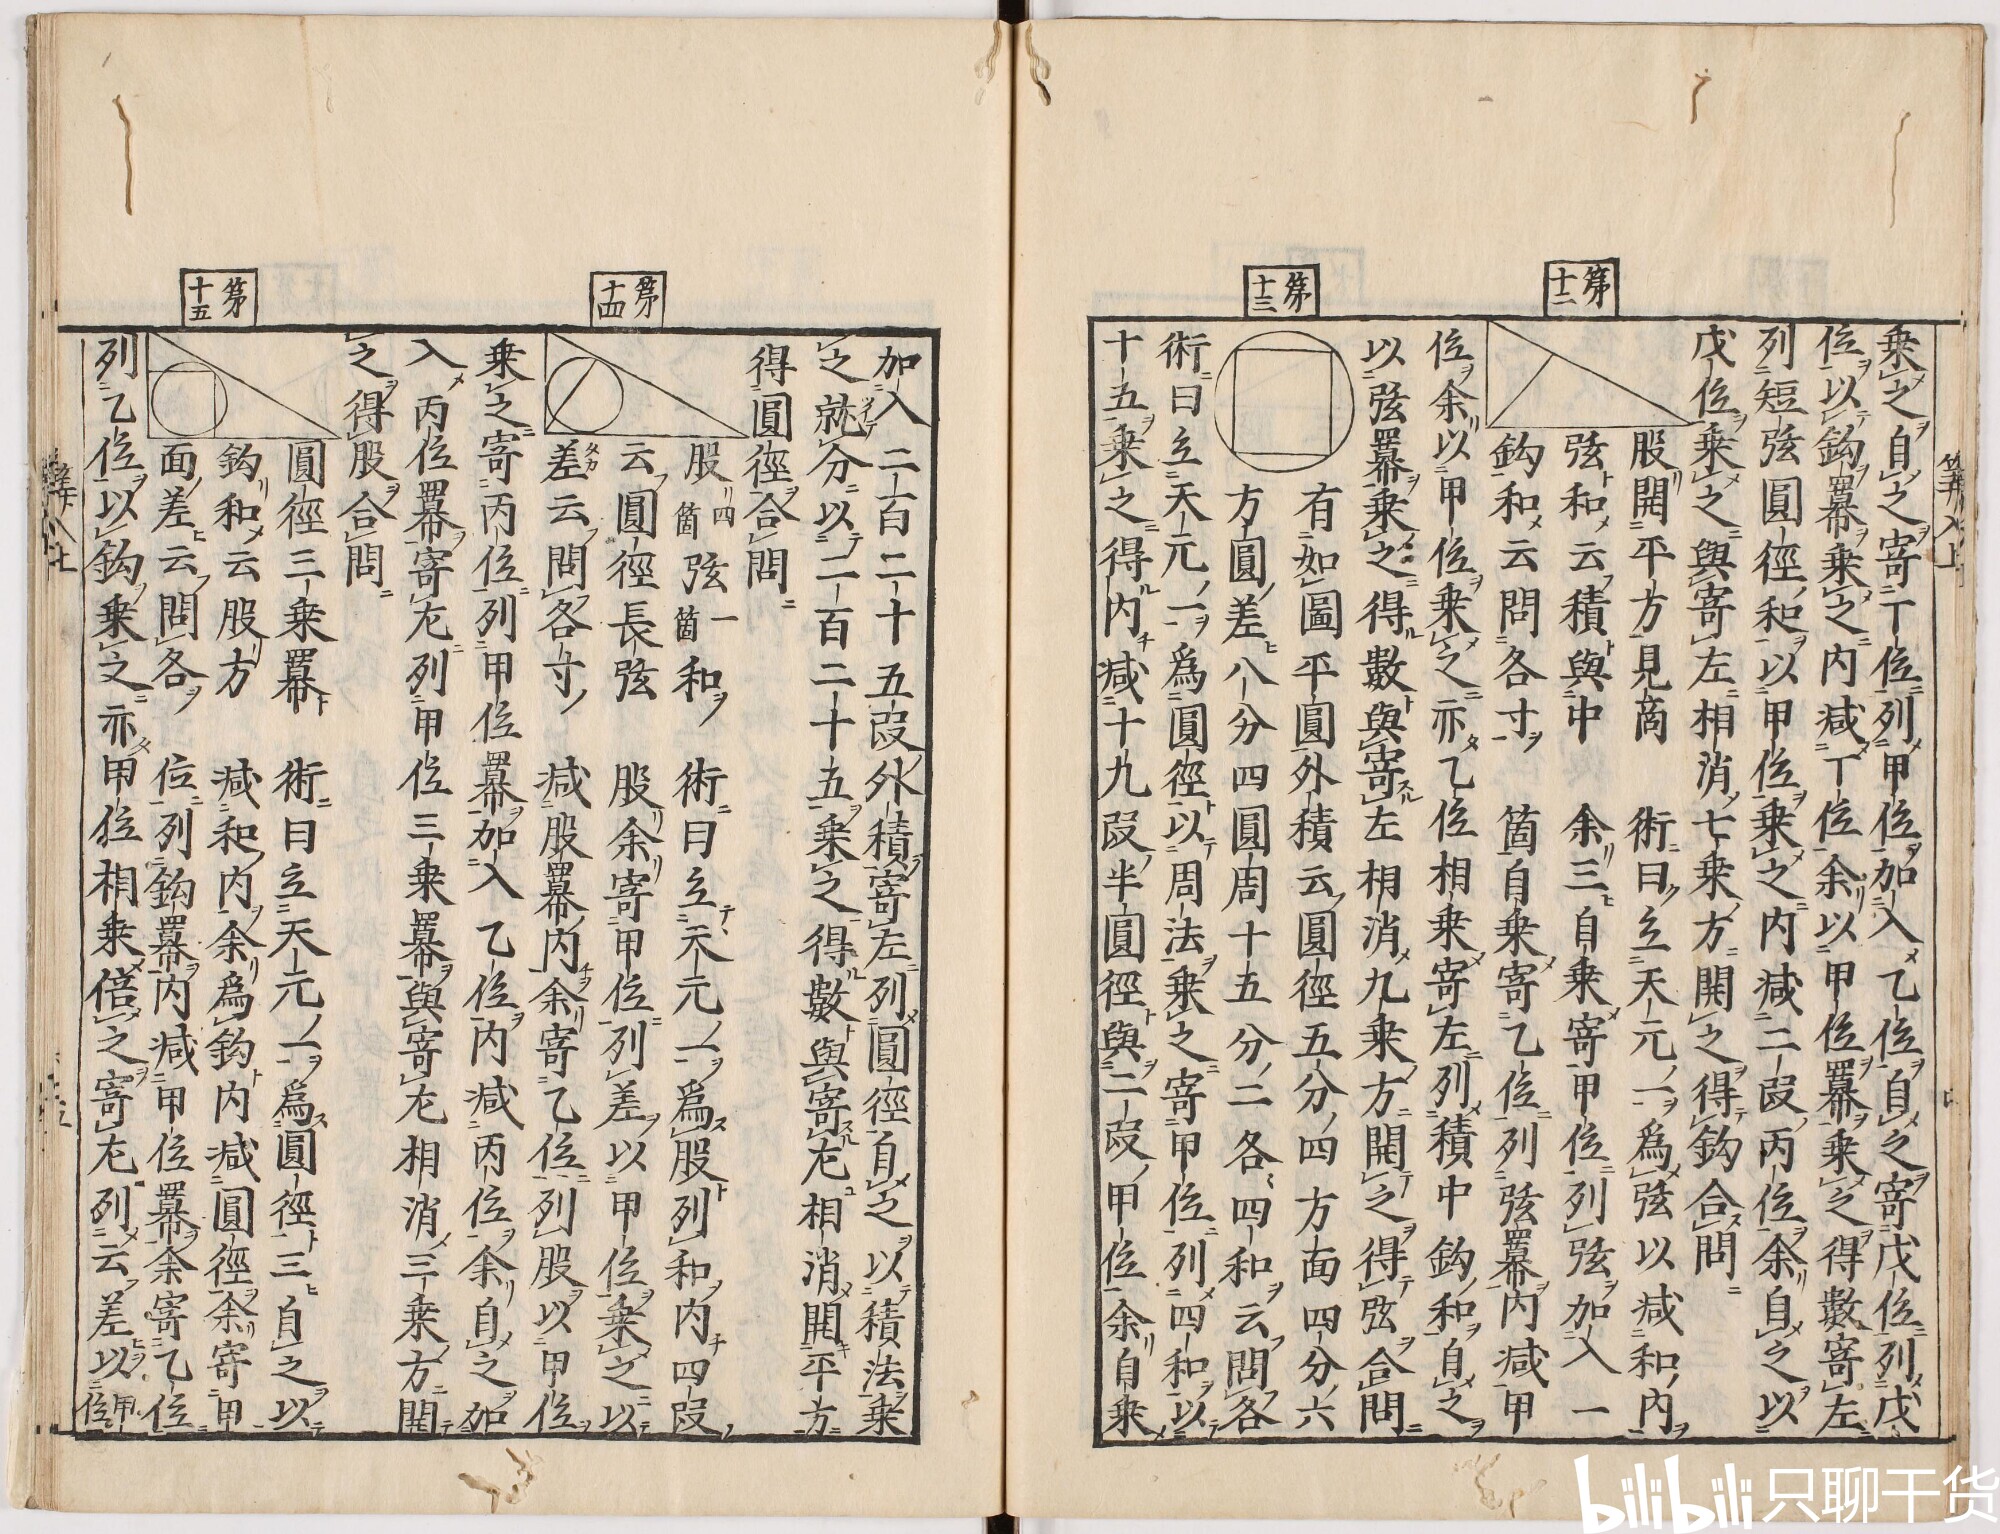 乗之自之寄丁位列甲位加入乙位自之寄戊位列戊
位以鈎冪乗之内减丁位余以甲位冪乗之得數寄左
列短弦圓徑和以甲位乗之内减二段丙位余自之以
戊位乗之與寄左相消七乗方開之得鈎合問
第十二
股開平方見商
弦和云積與中
鈎和云問各寸
術曰立天元一為弦以减和内
余三自乗寄甲位列弦加入一
箇自乗寄乙位列弦冪内减甲
位余以甲位乗之亦乙位相乗寄左列積中鈎和自之
以弦冪乗之得數與寄左相消九乗方開之得弦合問
第十三
有如圖平圓外積云圓徑五分四方面四分六
方圓差八分四圓周十五分二各四和云問各
術曰立天元一為圓徑以周法乗之寄甲位列四和以
十五乗之得内减十九段半圓徑與二段甲位余自乗
加入二百二十五段外積寄左列圓徑自之以積法乗
之就分以二百二十五乗之得數與寄左相消開平方
得圓徑合問
第十四
股四箇弦一箇和
云圓徑長弦
差云問各寸
術曰立天元一為股列和内四段
股余寄甲位列差以甲位乗之以
减股冪内余寄乙位列股以甲位
乗之寄丙位列甲位冪加入乙位内减丙位余自之加
入丙位冪寄左列甲位三乗冪與寄左相消三乗方開
之得股合問
第十五
圓徑三乗冪
鈎和云股方
面差云問各
術曰立天元一為圓徑三自之以
减和内余為鈎内减圓徑余寄甲
位列鈎冪内减甲位冪余寄乙位
列乙位以鈎乗之亦甲位相乗倍之寄左列云差以甲位
第入上